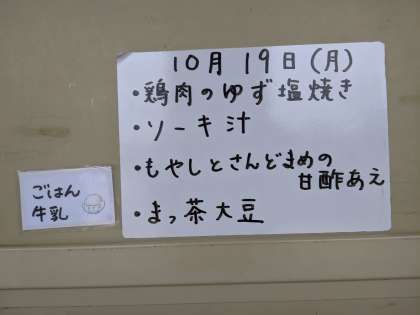 10月19日(月)
・鶏肉のゆず塩焼き
・ソーキ汁
・もやしとさんどまめの
甘酢あえ
・まっ茶大豆
ごはん
牛乳